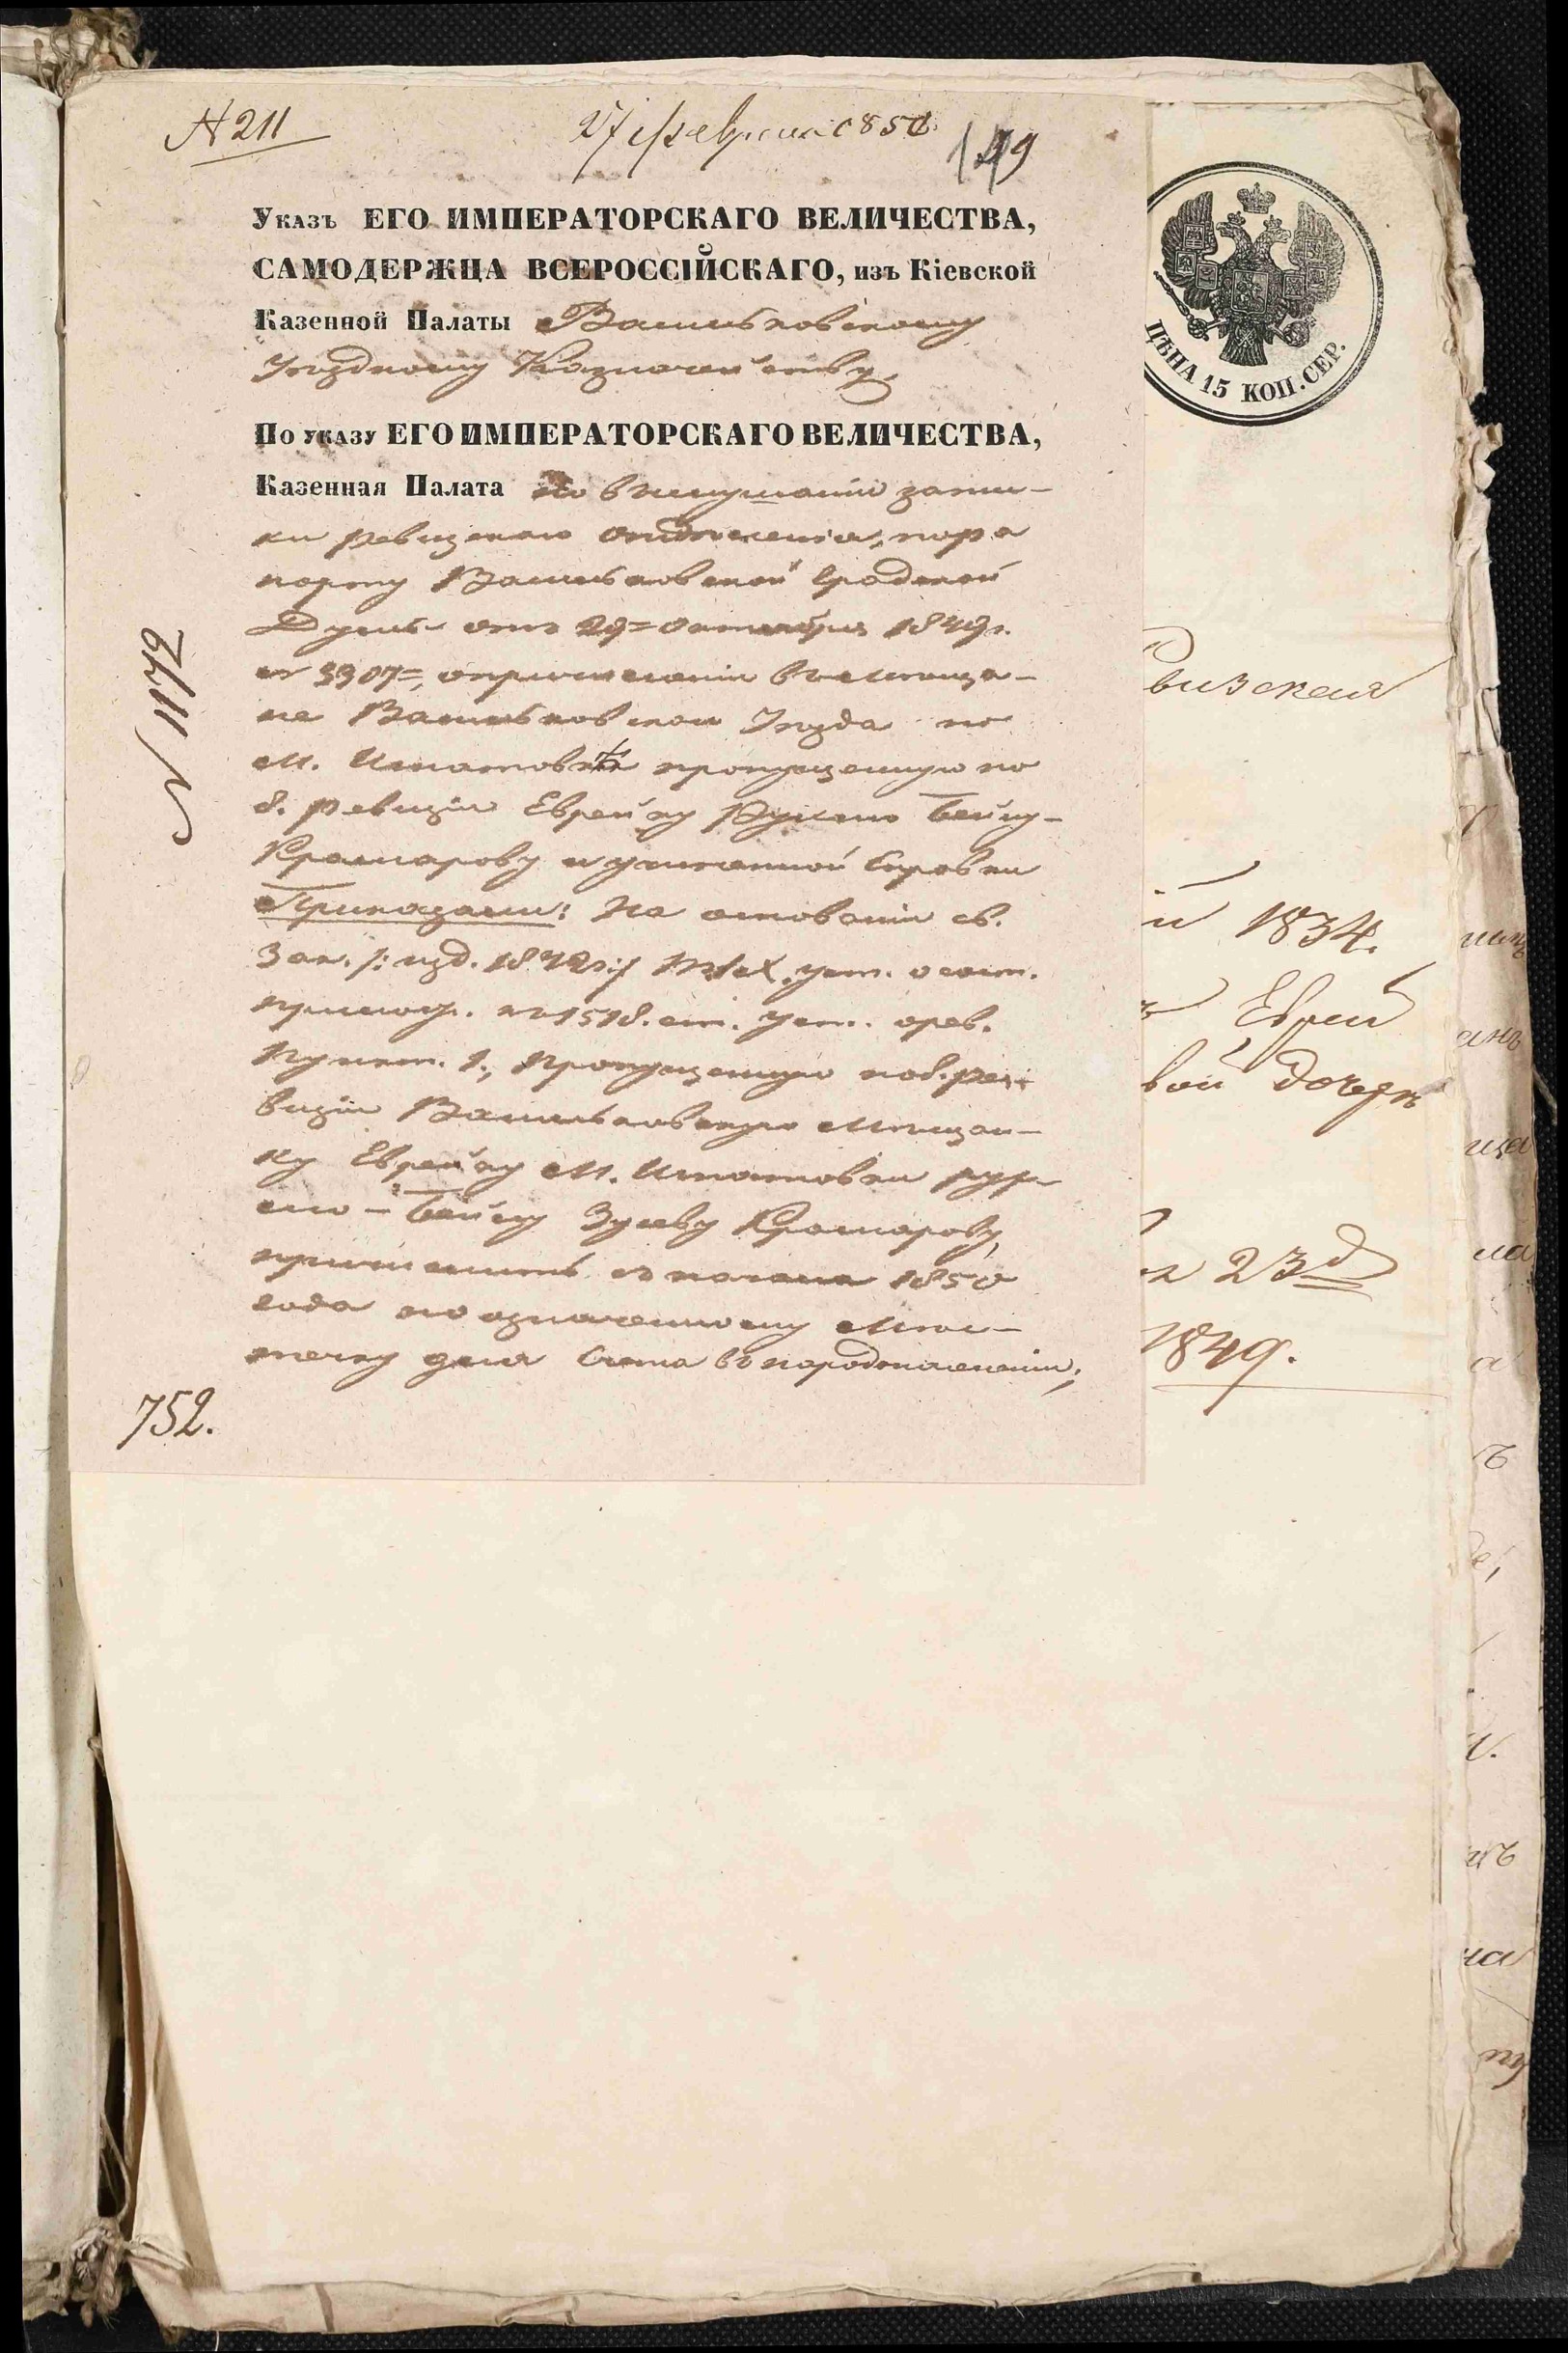 № 211
27 февраля 1850.
149
Указъ ЕГО ИМПЕРАТОРСКАГО ВЕЛИЧЕСТВА,
САМОДЕРЖЦА ВСЕРОССІЙСКАГО, изъ Кіевской
Казенной Палаты Васильковскому
Уѣздному Казначейству.
По указу ЕГО ИМПЕРАТОРСКАГО ВЕЛИЧЕСТВА,
Казенная Палата по выслушаніи запис-
ки Ревизскаго Отдѣленія, по ра
порту Васильковской Градской
Думы отъ 29 = Октября 1849 г.
№ 3307 =, о причисленіи въ мѣща-
не Васильковскаго Уѣзда по
М. Игнатовкѣ пропущенную по
8. ревизіи Еврейку Бейлу-
Крамарову и учиненной Справки
Приказали: На основаніи св.
Зак. /: изд. 1842 г:/ уст. о сост.
къ 1518. ст. Уст. о рев.
Пункт. 1., Пропущенную по 8. ре-
визіи Васильковскую Мѣщан-
ку Еврейку М. Игнатовки
Бейлу Зусеву Крамарову,
причислить съ начала 1850
года по означенному Мѣс-
течку для Счета въ народонаселеніи;
№ 1172
752.
ЦѢНА 15 КОП. СЕР.
визская
й 1834.
Еврей
вой дочерь
23
1849.